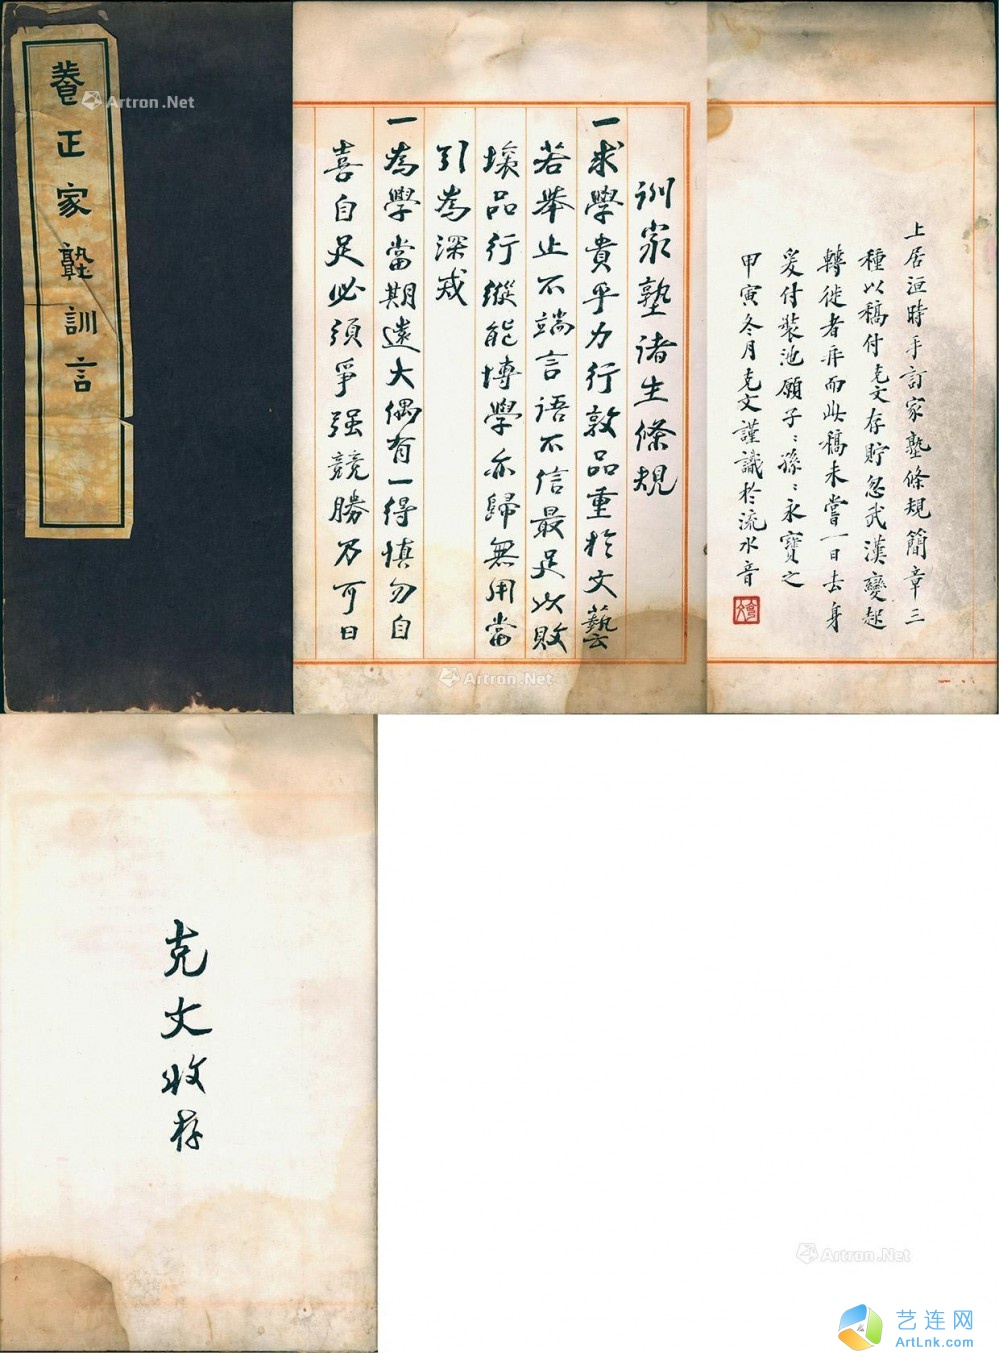 養正家塾訓言
訓家塾諸生條規
一求學貴乎力行敦品重於文藝
若舉止不端言語不信最足以敗
壞品行縱能博學亦歸無用當
引為深戒
一為學當期遠大偶有一得慎勿自
喜自足必須爭强競勝乃可日
上居洹時手訂家塾條規簡章三
種以稿付克文存貯忽武漢變起
轉徙者再而此稿未嘗一日去身
爰付裝池願子〻孫〻永寶之
甲寅冬月克文謹識於流水音
克文收存
Artron.Net
Artron.Net
Artron.Net
艺连网
ArtLnk.com